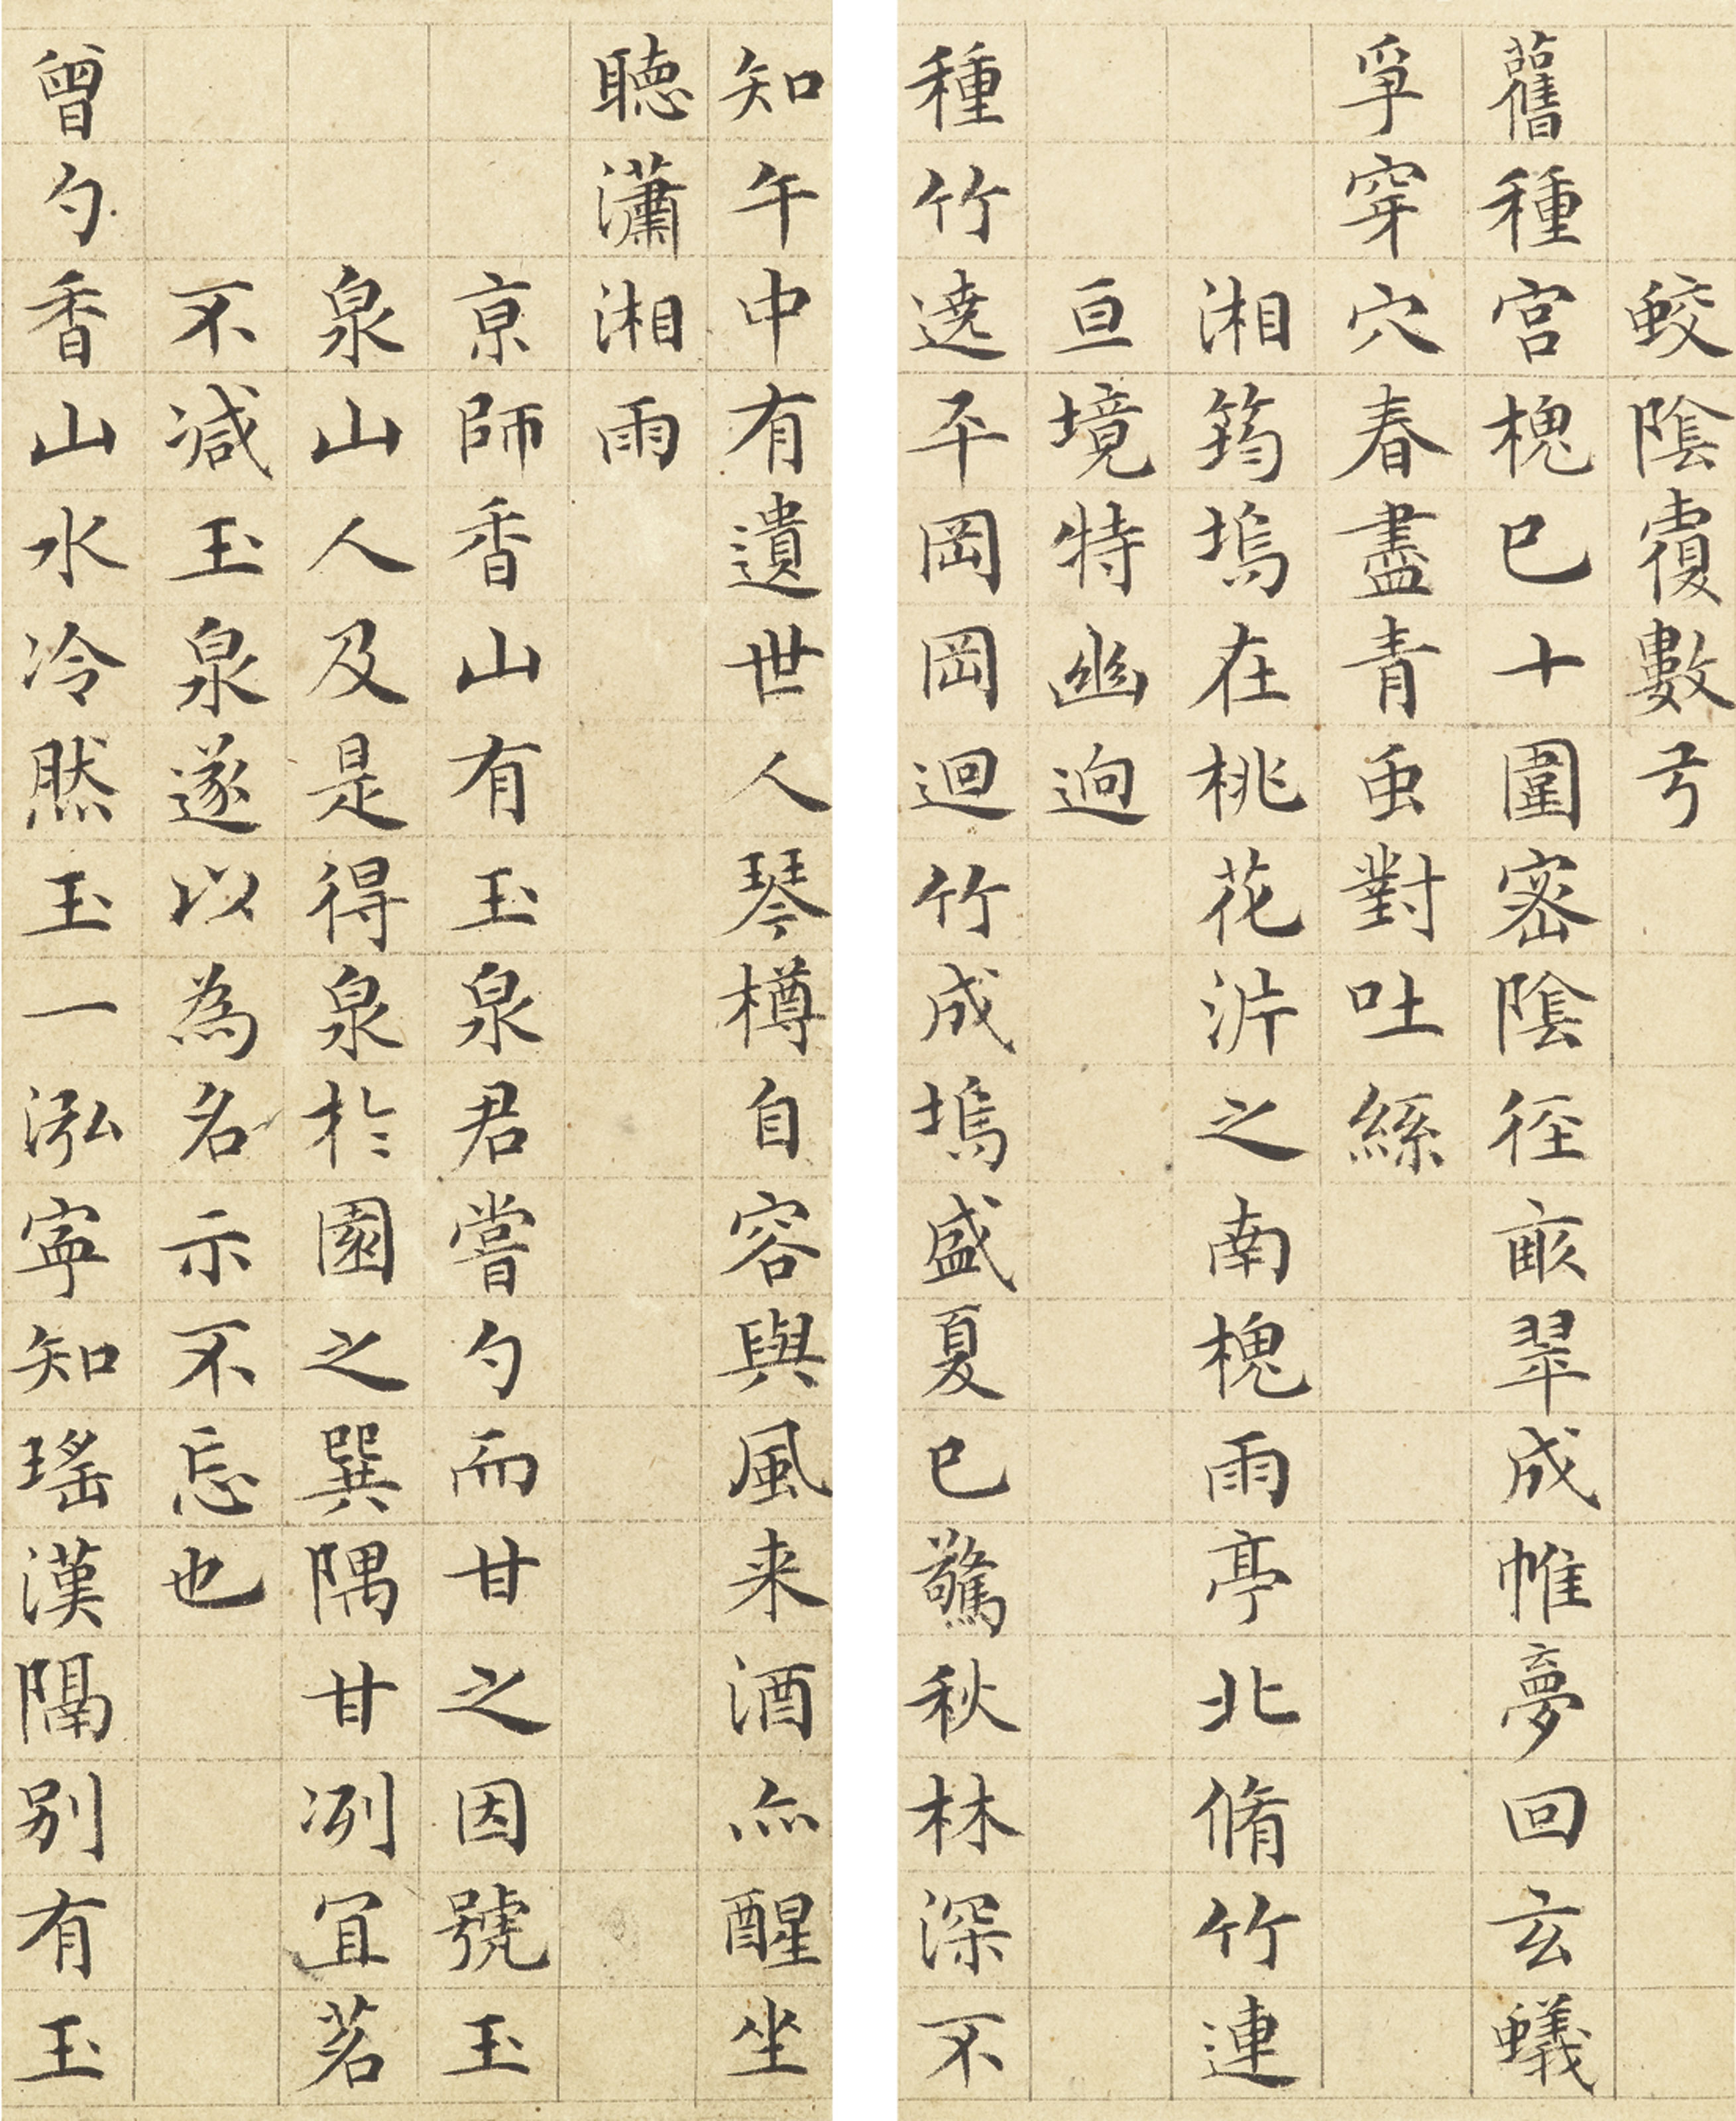 蛟陰覆數弓
舊種宮槐已十圍密陰徑畝翠成帷夢回玄蟻
爭穿穴春盡青虫對吐絲
湘筠塢在桃花沜之南槐雨亭北脩竹連
亘境特幽迥
種竹遶平岡岡迴竹成塢盛夏已驚秋林深不
知午中有遺世人琴樽自容與風来酒亦醒坐
聽瀟湘雨
京師香山有玉泉君嘗勺而甘之因號玉
泉山人及是得泉於園之巽隅甘冽宜茗
不減玉泉遂以為名示不忘也
曾勺香山水冷然玉一泓寧知瑤漢隔别有玉